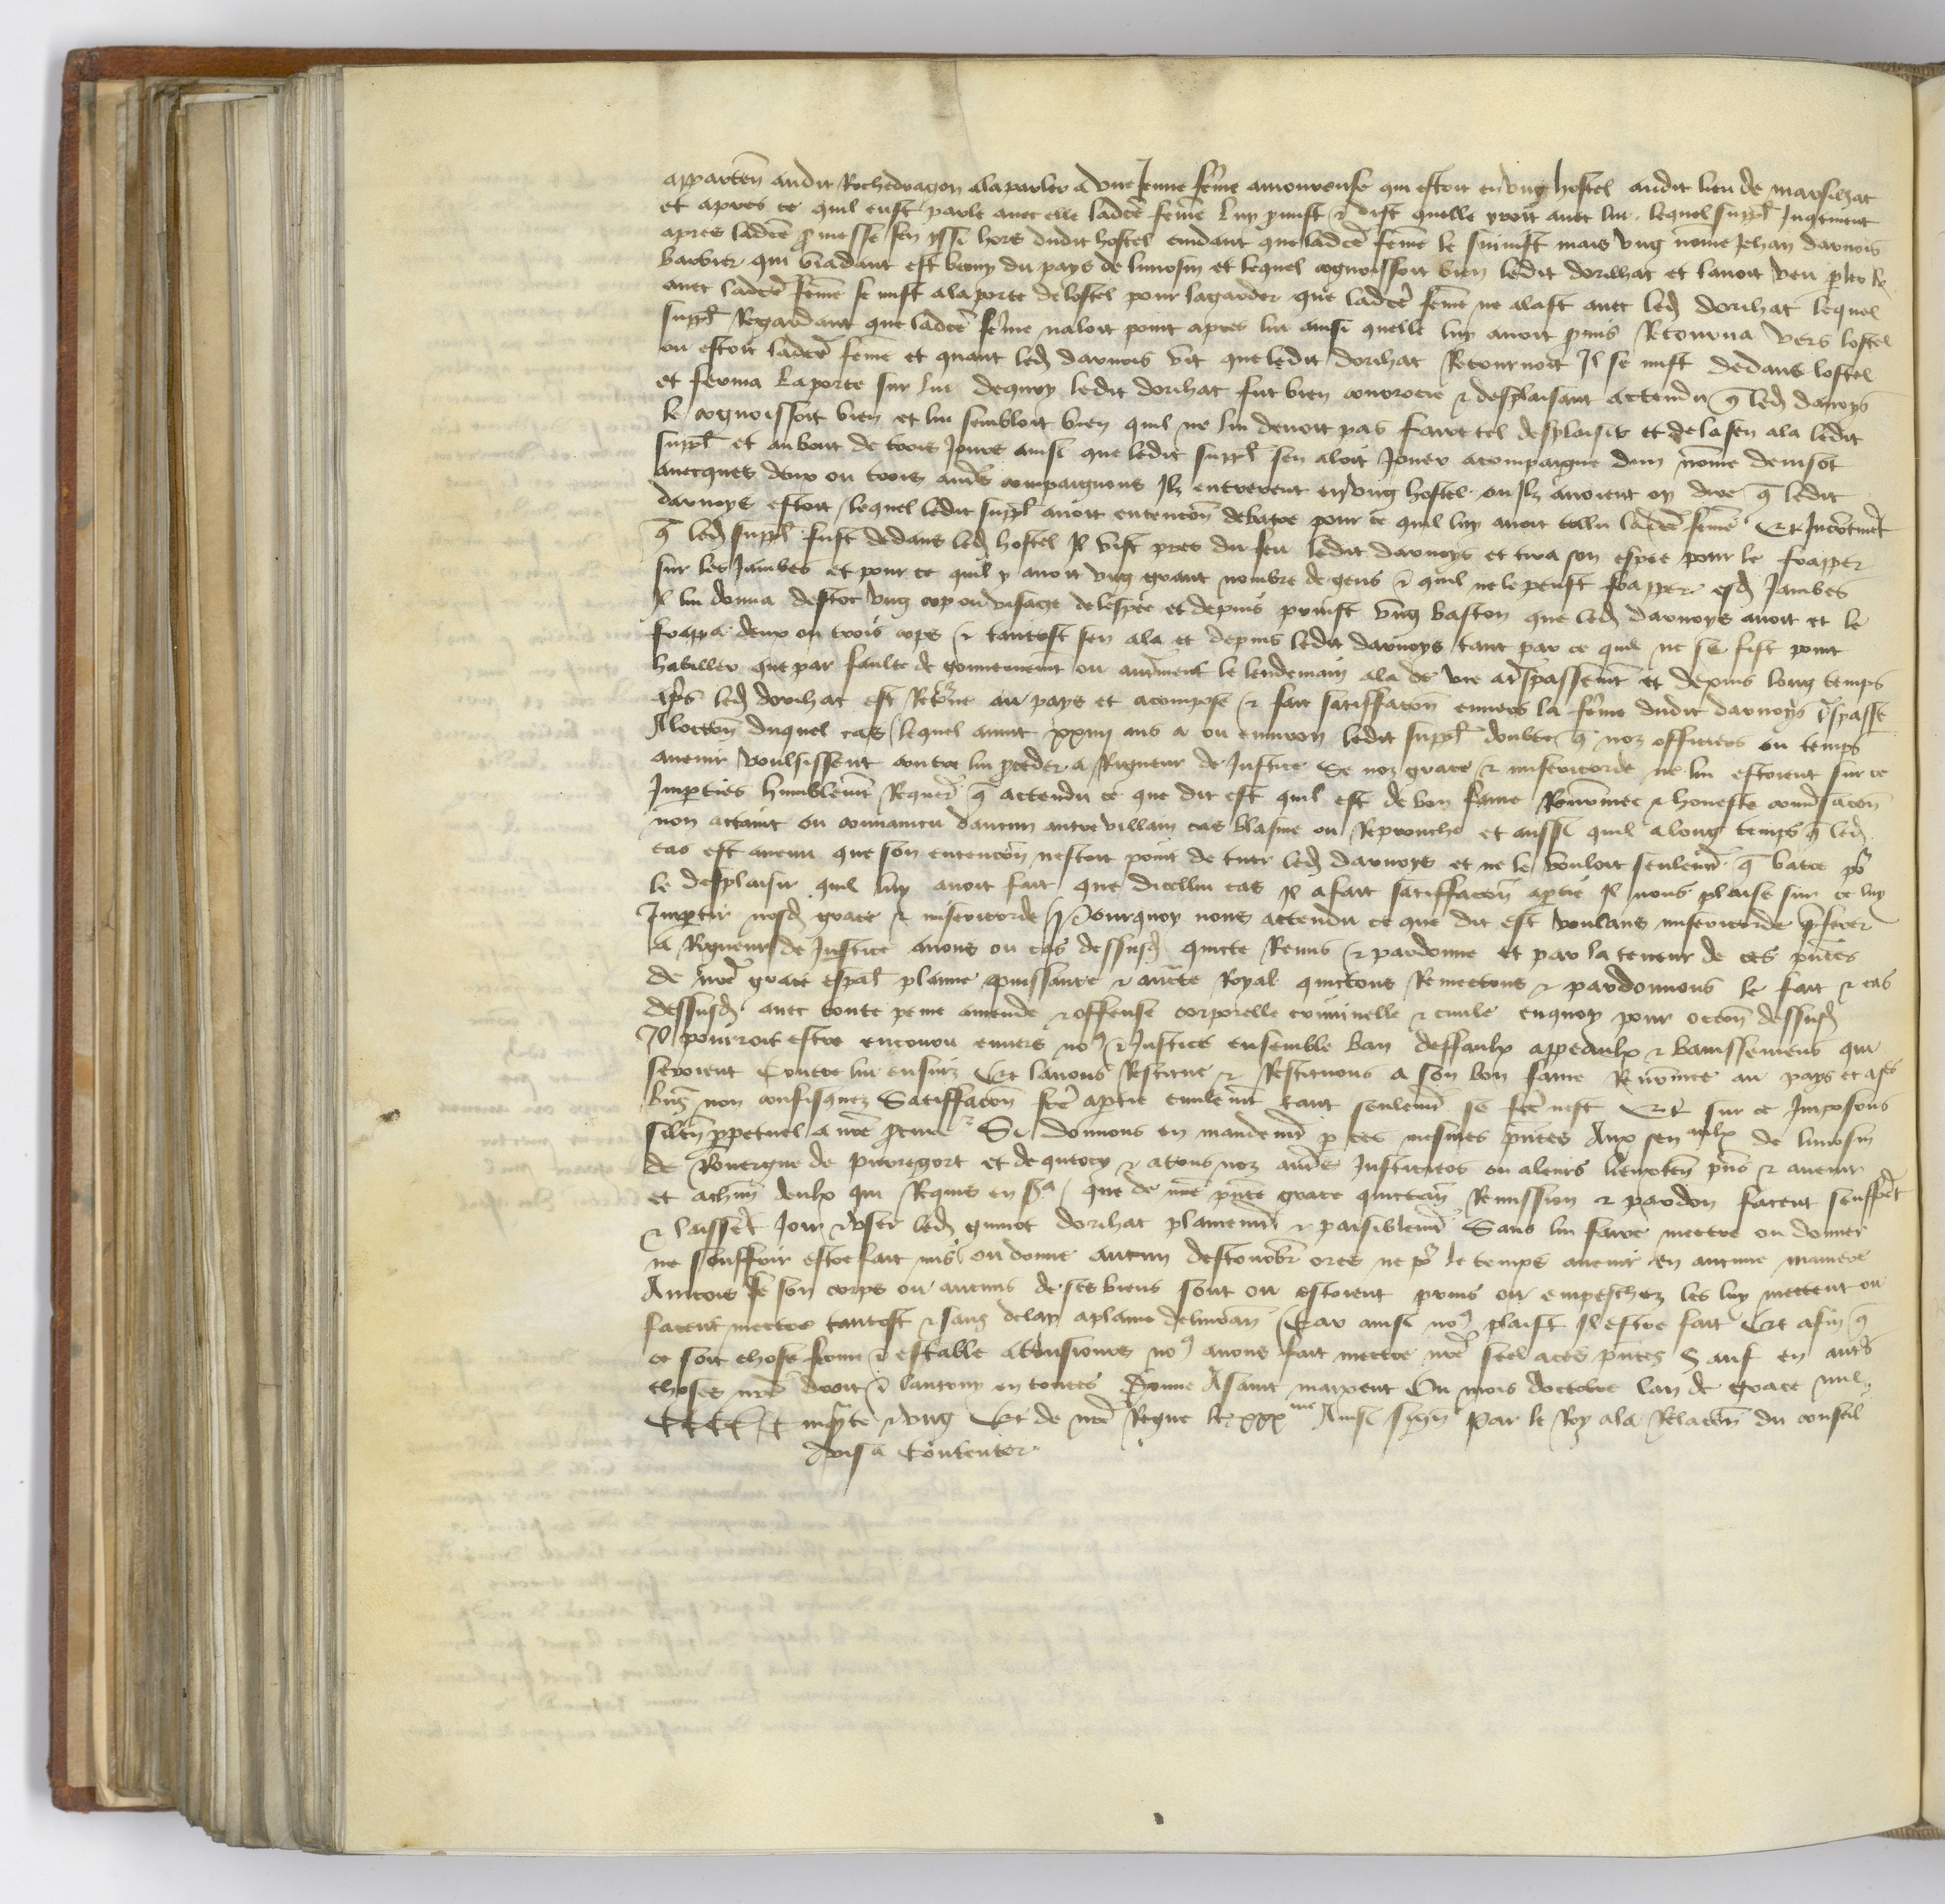 apparten̄ audit Rochedragon ala parler a une jeune fem̄e amoureuse qui estoit en ung hostel audit lieu de marsilhat
et apres ce quil eust parle avec elle ladcē fem̄e luy pmist et dist quelle yroit avec lui lequel supplt
apres ladcē pmesse sen yssi hors dudit hostel cuidant que ladcē fem̄e le suivist mais ung nōme Jehan darnois
barbier qui estoit venu du pays de limosin et lequel cognoissoit bien ledit dorilhat et lavoit veu pler
avec ladcē fem̄e se mist a la porte de lostel pour la garder que ladcē fem̄e ne alast avec led dorilhat lequel
supplt Regardant que ladcē fem̄e naloit point apres lui ainsi quelle luy avoit pmis Retourna vers lostel
ou estoit ladcē fem̄e et quant led darnois vit que ledit dorilhat Retournoit Il se mist dedans lostel
et ferma la porte sur lui dequoy ledit dorilhat fut bien courocie et desplaisant actendu q̄ led darnoys
le cognoissoit bien et lui sembloit bien quil ne lui devoit pas faire tel desplaisir et de la sen ala ledit
supplt et au bout de trois jours ainsi que ledit supplt sen aloit jouer acompaigne dun nōme denisot
avecques deux ou trois auts compaignons Ilz entrerent en ung hostel ou Ilz avoient oy dire q̄ ledit
darnoys estoit lequel ledit supplt avoit entencōn de batre pour ce quil luy avoit tollu ladcē fem̄e Et Incontinēt
q̄ led supplt fust dedans led hostel Il vist pres du feu ledit darnoys et tira son espee pour le frapper
sur les jambes et pour ce quil y avoit ung grant nombre de gens et quil ne le peust frapper esd jambes
Il lui donna destoc ung cop ou visage de lespee et depuis prinst ung baston que led darnoys avoit et le
frappa deux ou trois cops et tantost sen ala et depuis ledit darnoys tant par ce quil ne se fist point
habiller que par faulte de gouvernemt ou autrement le lendemain ala de vie a trespassemt et depuis long temps
aps led dorilhat est Retorne au pays et a compose et fait satiffacōn envers la fem̄e dudit darnoys trespasse
A loccōn duquel cas lequel avint xxiiij ans a ou environ ledit supplt doubte q̄ noz officiers ou temps
avenir voulsissent contre lui pceder a Rigueur de Justice se noz grace et misericorde ne lui estoient sur ce
Imparties humblemt Requert q̄ actendu ce que dit est quil est de bon fame Renōmee et honeste conversacōn
non actaint ou convaincu daucun autre villain cas blasme ou Reprouche et aussi quil a long temps q̄ led
cas est avenu que son entencōn nestoit point de tuer led darnoys et ne le vouloit seulemt q̄ batre pr
le desplaisir quil luy avoit fait que dicellui cas Il a fait satiffacōn a ptie Il nous plaise sur ce luy
Impartir nosd grace et misericorde Pourquoy nous actendu ce que dit est voulans misericorde pferer
a Rigueur de Justice avons ou cas dessusd quicte Remis et pardonne et par la teneur de ces pn̄tes
de nrē grace espal plaine puissance et aucte Royal quictons Remectons et pardonnons le fait et cas
dessusd avec toute peine amende et offense corporelle criminelle et civile en quoy pour occōn dessusd
Il pourroit estre encouru envers no9 et Justice ensemble ban deffaulx appeaulx et banissemens qui
seroient contre lui ensuiz Et lavons Restitue et Restituons a son bon fame Renōmee au pays et a ses
biens non confisquez Satiffacōn fcē a ptie civilemt tant seulemt se fcē nest Et sur ce Imposons
silen̄ ppetuel a nrē pcureur Si donnons en mandemt p ces mesmes pn̄tes Aux senaulx de limosin
de Rouergue de pierregort et de quercy et a tous noz auts Justiciers ou a leurs lieuxten̄ pn̄s et avenir
et a chun̄ deulx qui Requis en sa que de nrē pn̄te grace quictan̄ Remission et pardon facent seuffrēt
et laissēt joir et user led guinot dorilhat plainemt et paisiblemt Sans lui faire mectre ou donner
ne souffrir estre fait mis ou donne aucun destourbr ores ne pr le temps avenir en aucune maniere
Aincois se son corps ou aucuns de ses biens sont ou estoient prins ou empeschez les luy mectent ou
facent mectre tantost et sans delay a plaine delivran̄ Car ainsi no9 plaist Il estre fait Et afin q̄
ce soit chose ferme et estable a tousiours no9 avons fait mectre nrē seel a ces pn̄tes Sauf en auts
choses nrē droit et lautruy en toutes Donne A saint maixent Ou mois doctobre lan de grace mil
CCCC cinqte et ung Et de nrē Regne le xxxme Ainsi sign̄ Par le Roy a la Relacōn du conseil
Visa Contentor